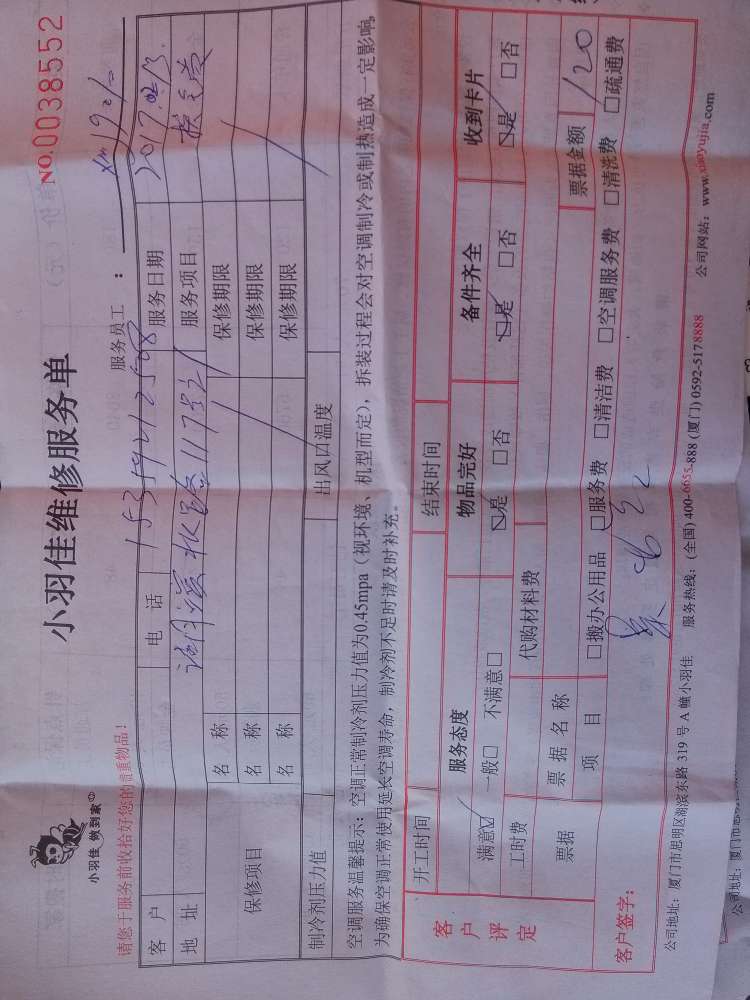 小羽佳维修服务单
NO.0038552
小羽佳 做到家
请您于服务前收拾好您的贵重物品！
服务员工：
客 户
电 话
服务日期 2017.02.13.
地 址
服务项目
保修项目
名 称
保修期限
名 称
保修期限
名 称
保修期限
制冷剂压力值
出风口温度
空调服务温馨提示：空调正常制冷剂压力值为0.45mpa（视环境、机型而定），拆装过程会对空调制冷或制热造成一定影响，
为确保空调正常使用延长空调寿命，制冷剂不足时请及时补充。
客户评定
开工时间
结束时间
服务态度
物品完好
备件齐全
收到卡片
满意☑ 一般□ 不满意□
☑是 □否
☑是 □否
☑是 □否
工时费
代购材料费
票据
票 据 名 称
票据金额 120
项 目
□搬办公用品 ☑服务费 □清洁费 □空调服务费 □清洗费 □疏通费
客户签字：
公司地址：厦门市思明区湖滨东路 319 号 A 幢小羽佳 服务热线：(全国) 400-6655-888 (厦门) 0592-5178888 公司网站：www.xiaoyujia.com
公司地址：厦门市思明